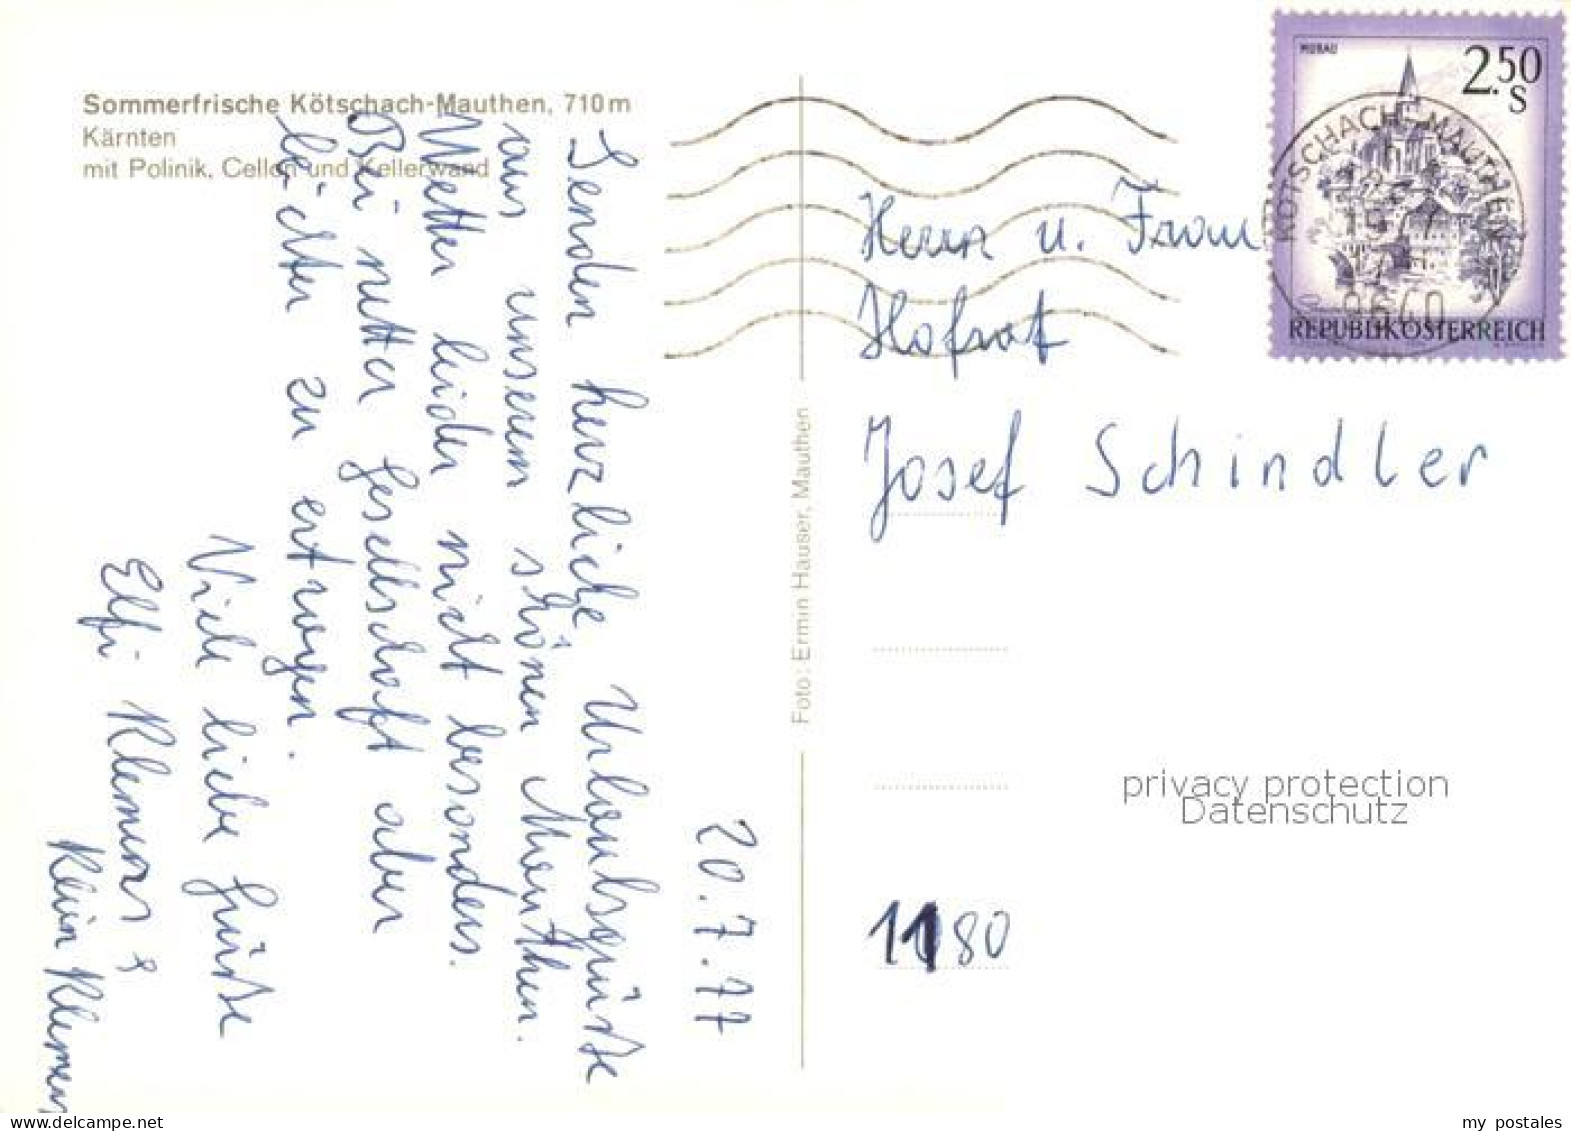 Sommerfrische Kötschach-Mauthen, 710m
Kärnten
mit Polinik, Cellon und Kellerwand
20.7.77
Senden herzliche Urlaubsgrüße
aus unserem schönen Mauthen.
Wetter leider nicht besonders.
Bei netter Gesellschaft aber
leichter zu ertragen.
Viele liebe Grüße
Elfi Klemens &
Klein Klemens
Foto: Ermin Hauser, Mauthen
MURAU
2.50
S
REPUBLIK ÖSTERREICH
KÖTSCHACH-MAUTHEN
9640
Herrn u. Frau
Hofrat
Josef Schindler
privacy protection
Datenschutz
1180
my postales